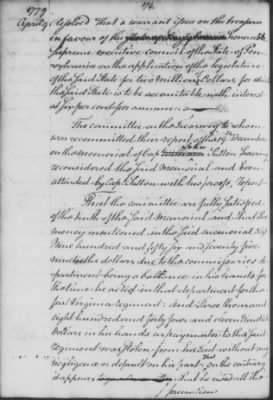 1779
April 9 Resolved That a warrant issue on the treasurer
in favour of the honorable
Supreme executive council of the State of Penn
sylvania on the application of the legislature
of the said State for two Million Dollars for which
the said State is to be accountable with interest
at six per cent per annum
The committee on the Treasury to whom
was recommitted their report of the 19th December
on the memorial of Capt John Sutton having
reconsidered the said Memorial and been
attended by Capt Sutton with his proofs, report
That the committee are fully satisfied
of the truth of the said Memorial and that the
money mentioned in the said memorial
Nine hundred and fifty six and seventy five
dollars due to the commissaries de
partment being a ballance in his hands for
the time he acted in that department for the
Virginia regiment And three thousand
eight hundred and forty four and eleven
Dollars in his hands for payments to the said
regiment was stolen from his tent without any
negligence or default on his part That on the contrary
it appears that he used all the
precaution